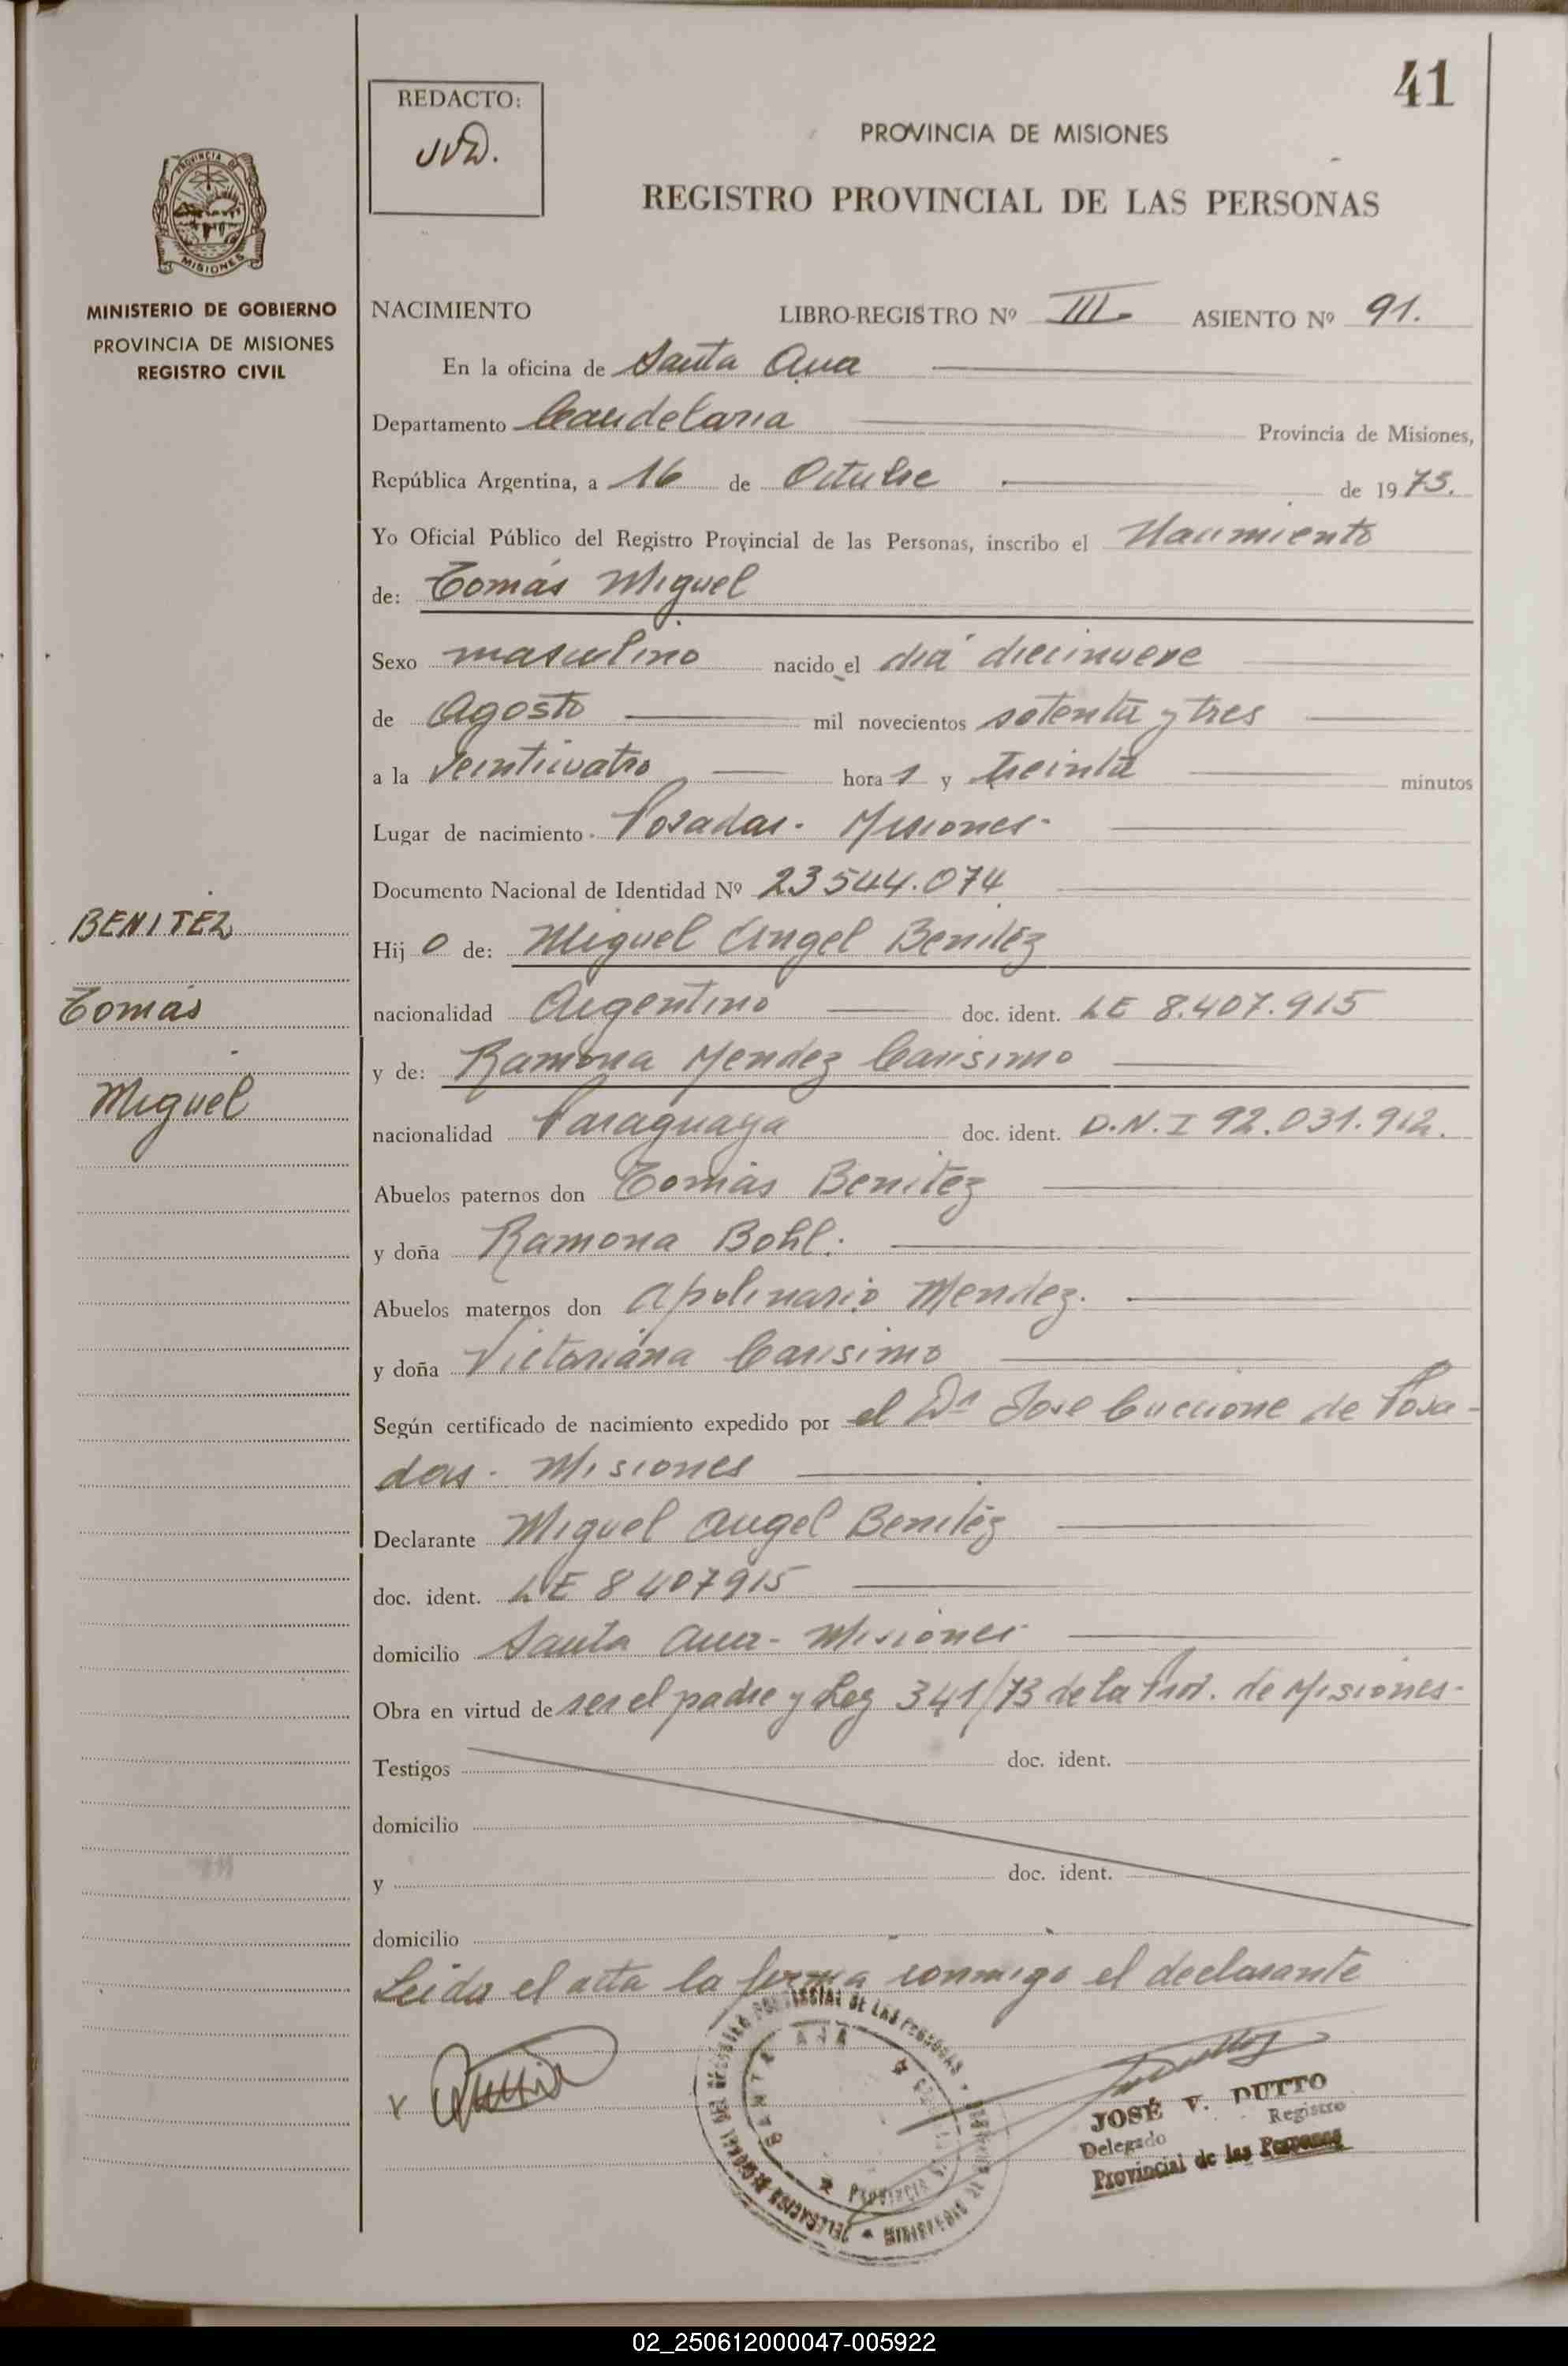 41
REDACTO:
JVD.
PROVINCIA DE MISIONES
REGISTRO PROVINCIAL DE LAS PERSONAS
PROVINCIA DE
MISIONES
MINISTERIO DE GOBIERNO
PROVINCIA DE MISIONES
REGISTRO CIVIL
NACIMIENTO LIBRO-REGISTRO Nº III ASIENTO Nº 91.
En la oficina de Santa Ana
Departamento Candelaria Provincia de Misiones,
República Argentina, a 16 de Octubre de 1973.
Yo Oficial Público del Registro Provincial de las Personas, inscribo el Nacimiento
de: Tomás Miguel
Sexo masculino nacido el dia diecinueve
de Agosto mil novecientos setenta y tres
a la Veinticuatro hora s y treinta minutos
Lugar de nacimiento Posadas. Misiones-
Documento Nacional de Identidad Nº 23544.074
BENITEZ
Tomás
Miguel
Hij o de: Miguel Angel Benitez
nacionalidad Argentino doc. ident. LE 8.407.915
y de: Ramona Mendez Carisimo
nacionalidad Paraguaya doc. ident. D.N.I 92.031.912.
Abuelos paternos don Tomás Benitez
y doña Ramona Bohl.
Abuelos maternos don Apolinario Mendez.
y doña Victoriana Carisimo
Según certificado de nacimiento expedido por el Dr Jose Cuccione de Posa-
das. Misiones
Declarante Miguel Angel Benitez
doc. ident. LE 8407915
domicilio Santa Ana- Misiones
Obra en virtud de ser el padre y Ley 341/73 de la Prov. de Misiones-
Testigos doc. ident.
domicilio
y doc. ident.
domicilio
Leida el acta la firma conmigo el declarante
SANTA ANA
JOSÉ V. DUTTO
Delegado Registro
Provincial de las Personas
02_250612000047-005922